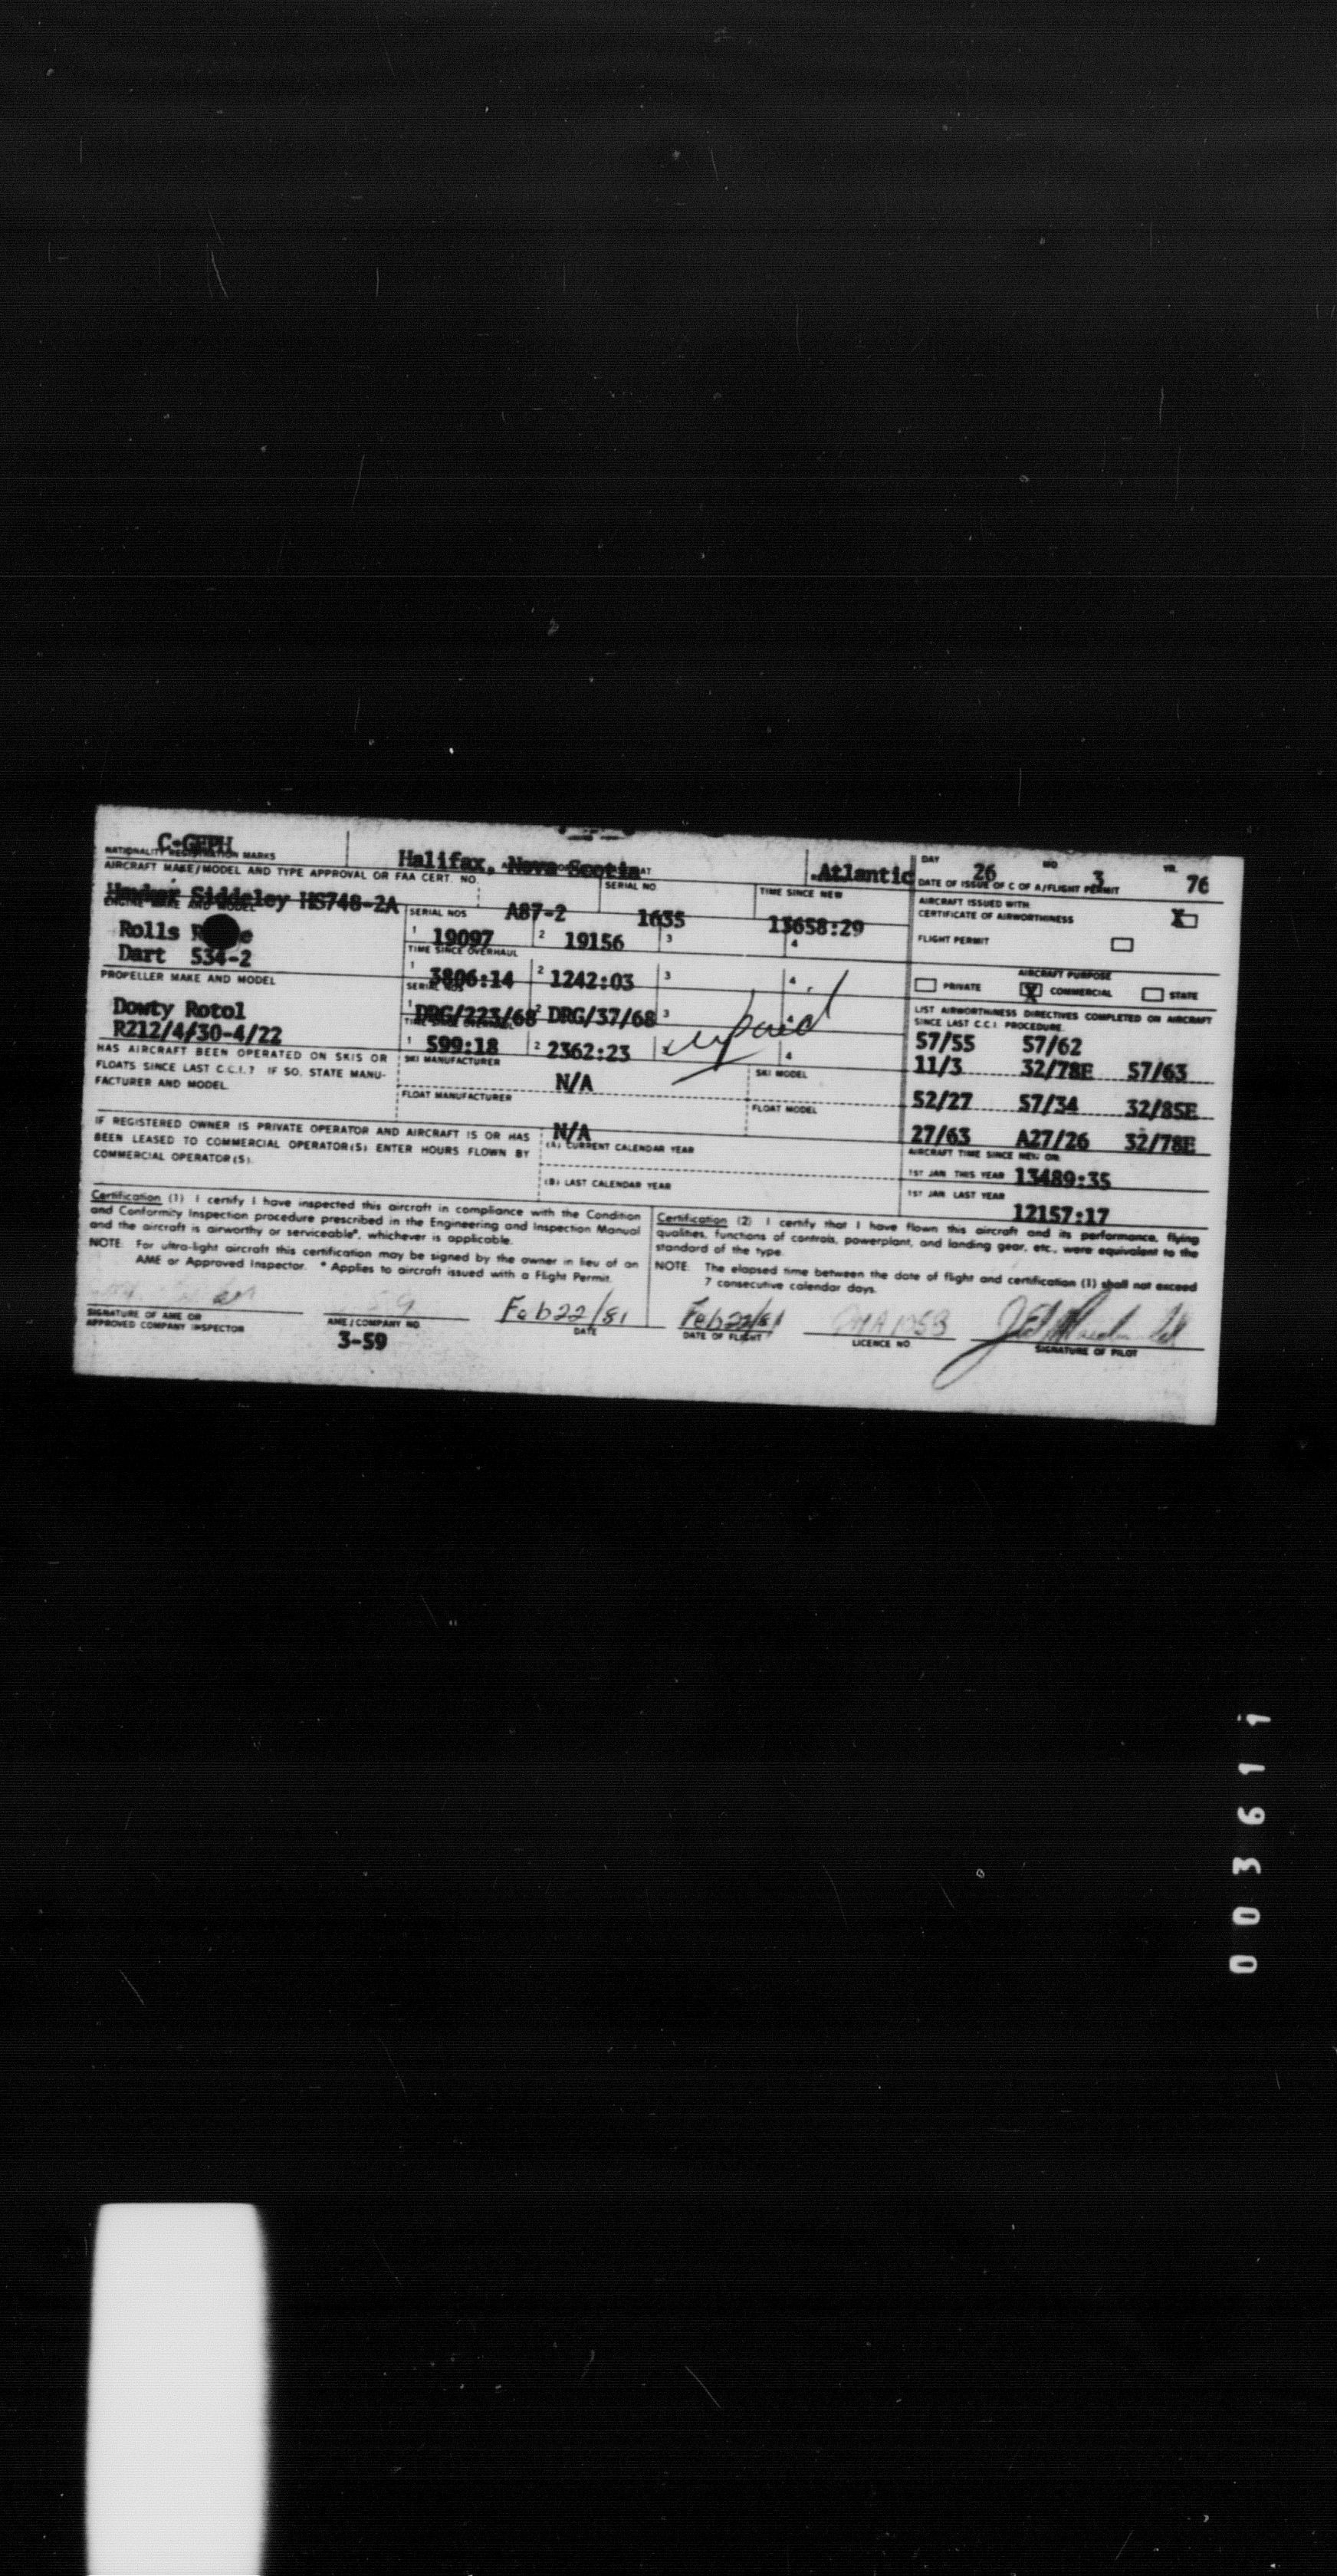 C-GEPH
NATIONALITY REGISTRATION MARKS
Halifax, Nova Scotia
Atlantic
DAY 26 MO 3 YR. 76
DATE OF ISSUE OF C OF A/FLIGHT PERMIT
AIRCRAFT MAKE/MODEL AND TYPE APPROVAL OR FAA CERT. NO.
SERIAL NO
TIME SINCE NEW
Hawker Siddeley HS748-2A
A87-2
1635
13658:29
AIRCRAFT ISSUED WITH
CERTIFICATE OF AIRWORTHINESS X
FLIGHT PERMIT
ENGINE MAKE AND MODEL
Rolls
Dart 534-2
SERIAL NOS
1 19097 2 19156 3 4
TIME SINCE OVERHAUL
1 3806:14 2 1242:03 3 4
AIRCRAFT PURPOSE
PRIVATE X COMMERCIAL STATE
PROPELLER MAKE AND MODEL
Dowty Rotol
R212/4/30-4/22
SERIAL NOS
1 DRG/223/68 2 DRG/37/68 3
TIME SINCE OVERHAUL
1 599:18 2 2362:23 4
LIST AIRWORTHINESS DIRECTIVES COMPLETED ON AIRCRAFT
SINCE LAST C.C.I. PROCEDURE.
57/55 57/62
11/3 32/78E 57/63
52/27 57/34 32/85E
27/63 A27/26 32/78E
HAS AIRCRAFT BEEN OPERATED ON SKIS OR
FLOATS SINCE LAST C.C.I.? IF SO, STATE MANU-
FACTURER AND MODEL.
SKI MANUFACTURER
N/A
SKI MODEL
FLOAT MANUFACTURER
N/A
FLOAT MODEL
IF REGISTERED OWNER IS PRIVATE OPERATOR AND AIRCRAFT IS OR HAS
BEEN LEASED TO COMMERCIAL OPERATOR(S) ENTER HOURS FLOWN BY
COMMERCIAL OPERATOR(S).
(A) CURRENT CALENDAR YEAR
(B) LAST CALENDAR YEAR
AIRCRAFT TIME SINCE NEW ON:
1ST JAN THIS YEAR 13489:35
1ST JAN LAST YEAR
12157:17
Certification (1) I certify I have inspected this aircraft in compliance with the Condition
and Conformity Inspection procedure prescribed in the Engineering and Inspection Manual
and the aircraft is airworthy or serviceable*, whichever is applicable.
NOTE: For ultra-light aircraft this certification may be signed by the owner in lieu of an
AME or Approved Inspector. * Applies to aircraft issued with a Flight Permit.
Certification (2) I certify that I have flown this aircraft and its performance, flying
qualities, functions of controls, powerplant, and landing gear, etc., were equivalent to the
standard of the type.
NOTE: The elapsed time between the date of flight and certification (1) shall not exceed
7 consecutive calendar days.
SIGNATURE OF AME OR
APPROVED COMPANY INSPECTOR
AME/COMPANY NO.
3-59
Feb 22/81
DATE
Feb 22/81
DATE OF FLIGHT
LICENCE NO.
SIGNATURE OF PILOT
003611